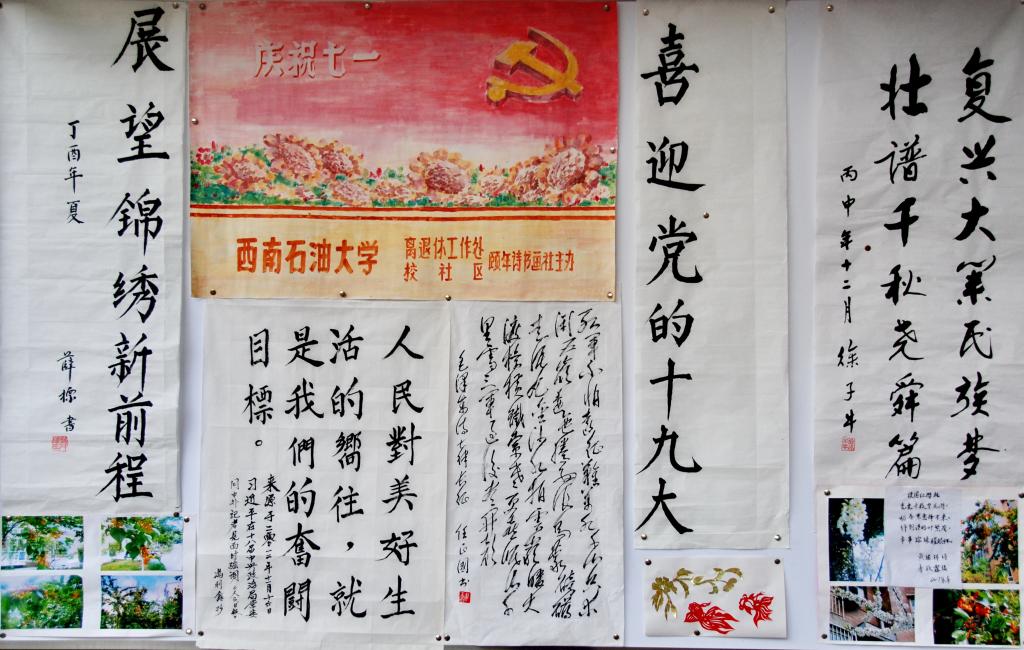 展望锦绣新前程
丁酉年夏
薛标书
庆祝七一
西南石油大学
离退休工作处
校社区
颐年诗书画社主办
人民對美好生
活的嚮往，就
是我們的奮鬪
目標。
来源于二〇一二年十一月十五日
习近平在十八届中央政治局常委
红軍不怕遠征難萬水千山只等
闲五嶺逶迤腾细浪烏蒙磅礴
走泥丸金沙水拍雲崖暖大
渡橋横鐵索寒更喜岷山千
里雪三軍过後尽开颜
毛澤東诗七律长征
喜迎党的十九大
复兴大業民族梦
壮谱千秋尧舜篇
丙申年十二月 徐子牛